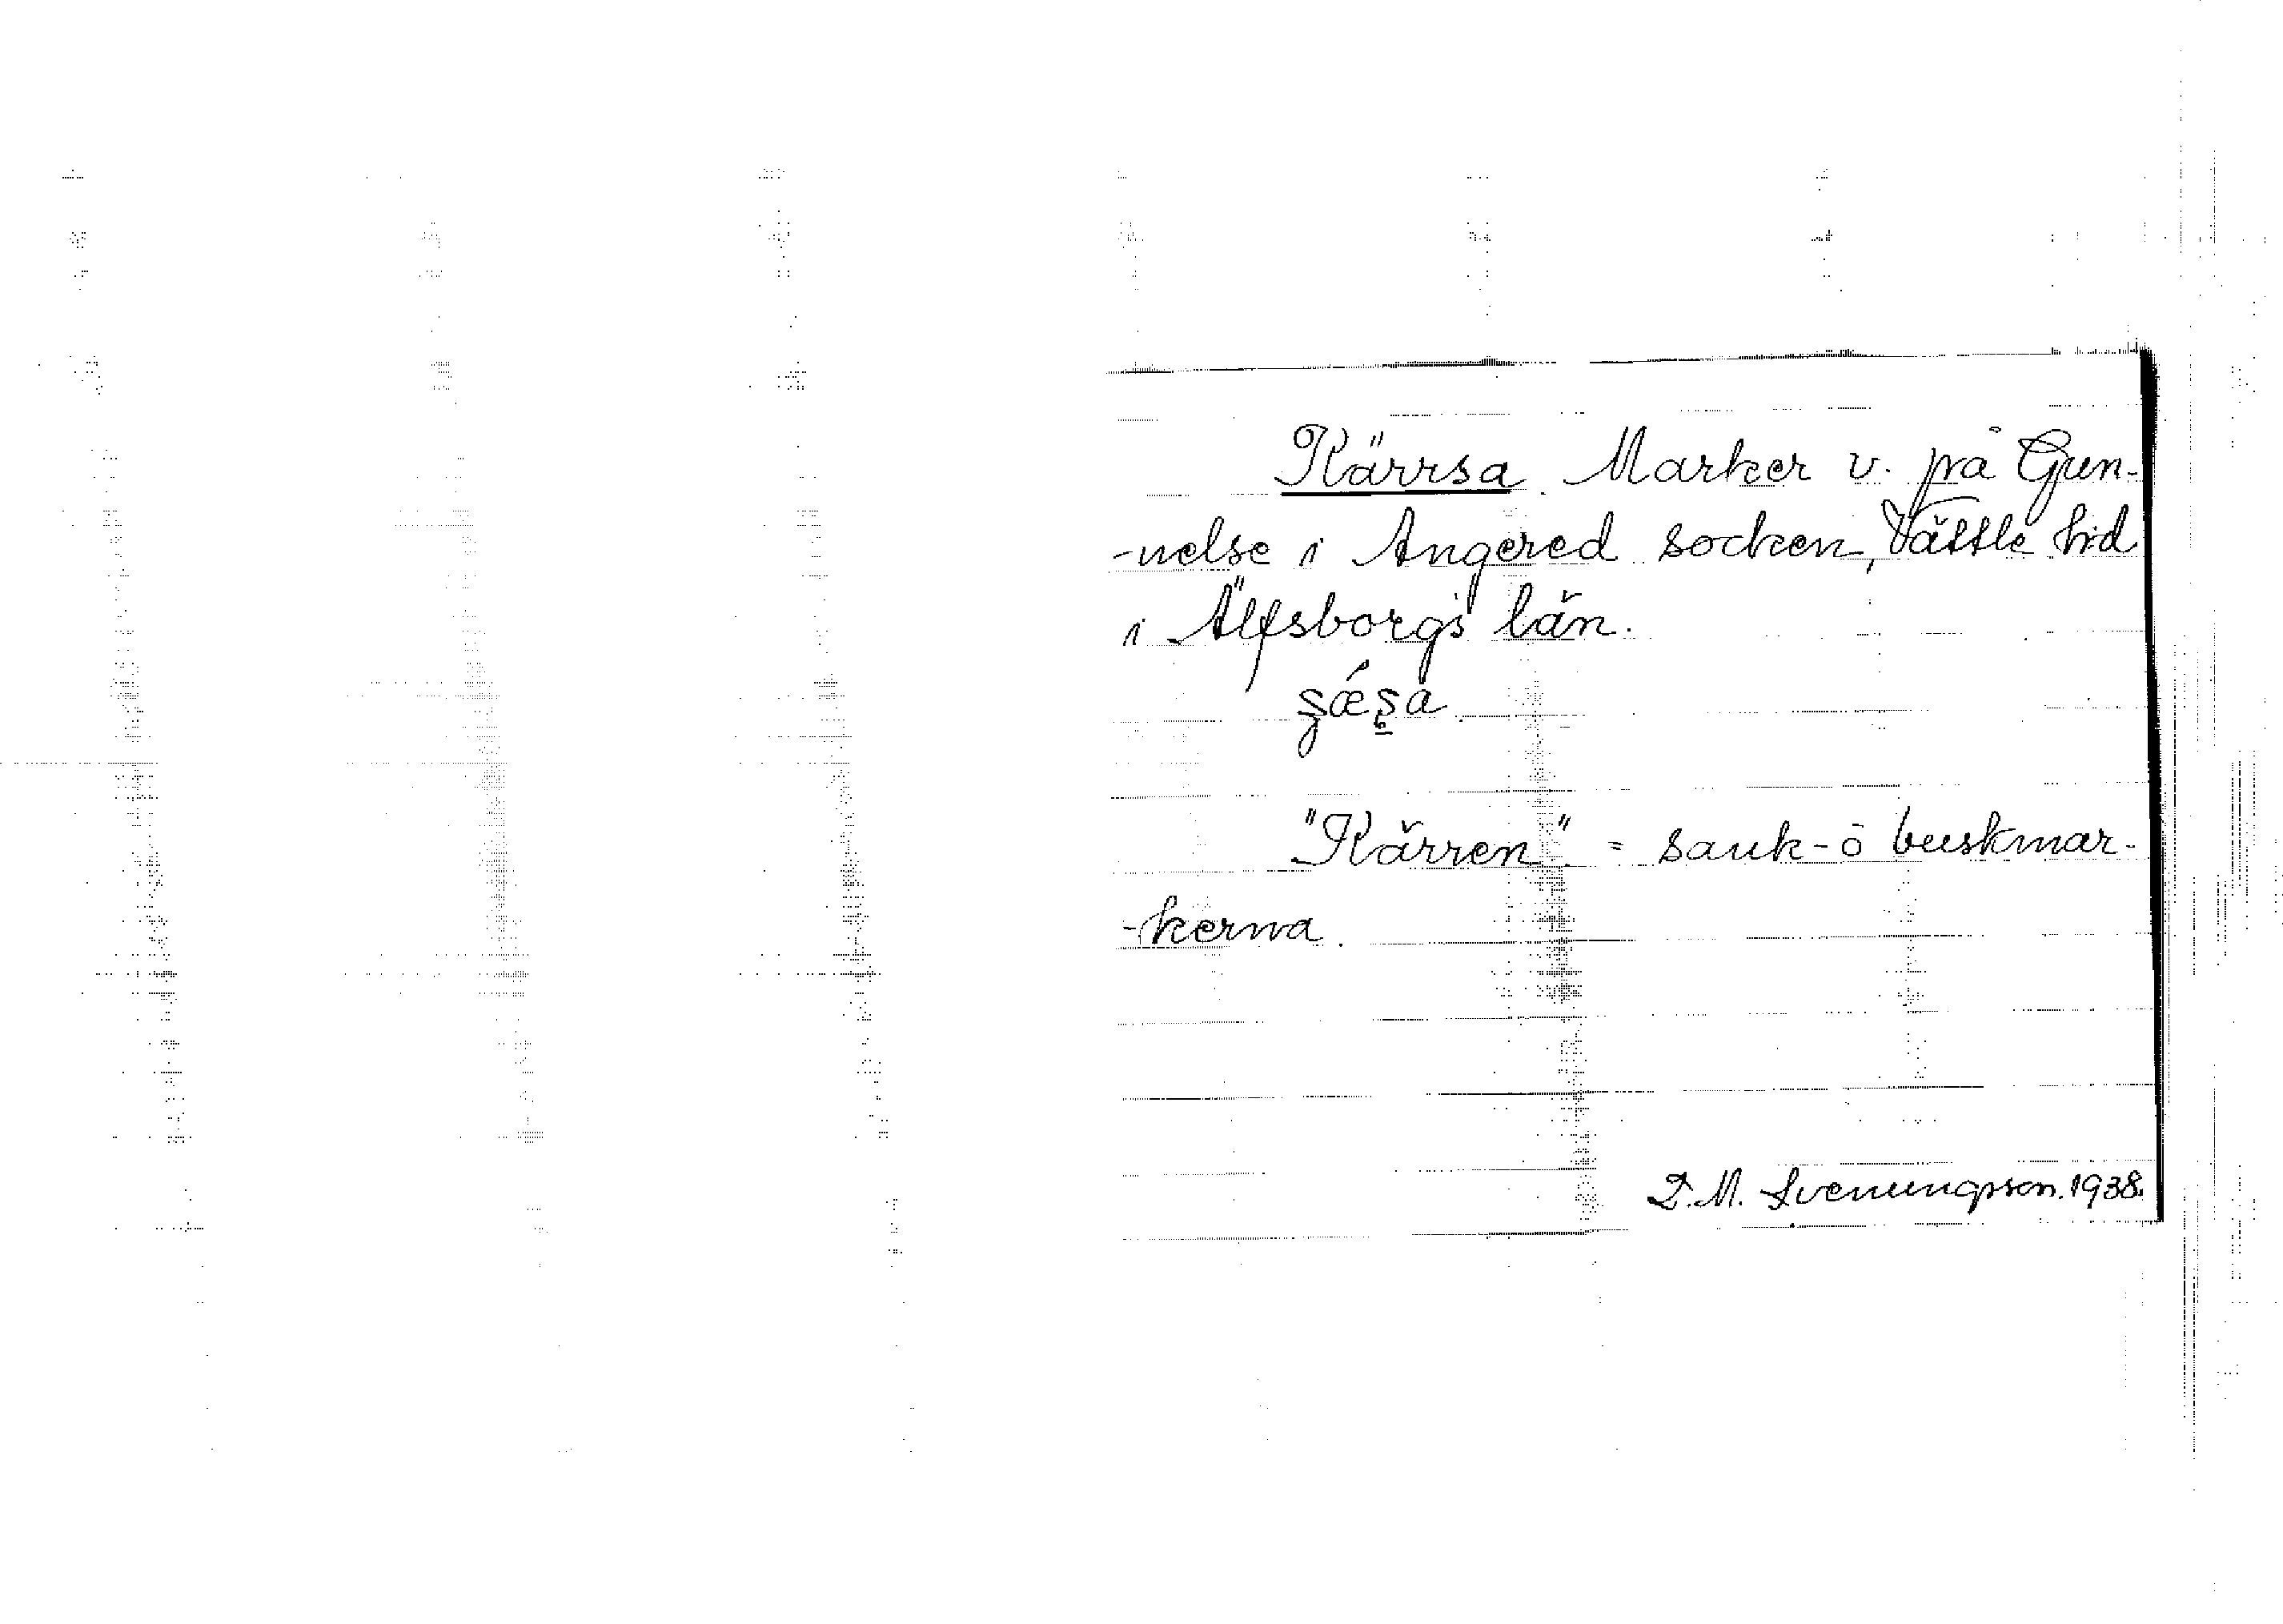 Kärrsa. Marker v. på Gun-
-nelse i Angered socken, Vättle hd
i Älfsborgs län.
"Kärren" = sank- o buskmar-
-kerna.
D. M. Svenungsson. 1938.